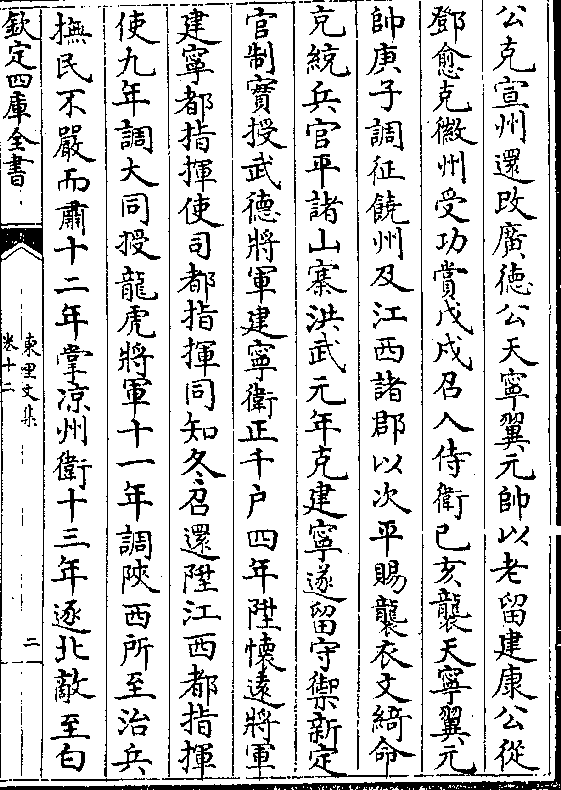 公克宣州還改廣德公天寧翼元帥以老留建康公從
鄧愈克徽州受功賞戊戌召入侍衛已亥襲天寧翼元
帥庚子調征饒州及江西諸郡以次平賜襲衣文綺命
充統兵官平諸山寨洪武元年克建寧遂留守禦新定
官制實授武德將軍建寧衛正千户四年陞懷遠將軍
建寧都指揮使司都指揮同知冬召還陞江西都指揮
使九年調大同授龍虎將軍十一年調陜西所至治兵
撫民不嚴而肅十二年掌凉州衛十三年逐北敵至白
欽定四庫全書
東里文集
卷十二
二